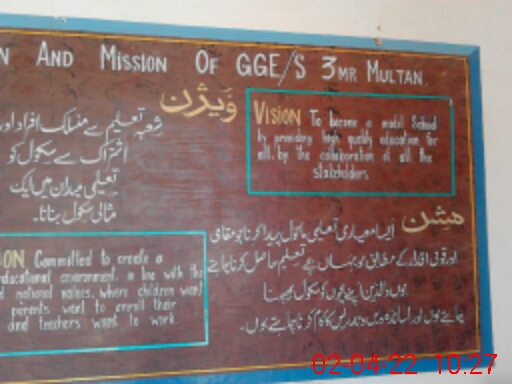 N AND MISSION OF GGE/S 3MR MULTAN.
ویژن
شعبہ تعلیم سے منسلک افراد اور
اشتراک سے سکول کو
تعلیمی میدان میں ایک
مثالی سکول بنانا۔
VISION To become a model School
by providing high quality education for
all by the collaboration of all the
stakeholders
مشن
ایسا معیاری تعلیمی ماحول پیدا کرنا جو مقامی
اور قومی اقدار کے مطابق ہو جہاں بچے تعلیم حاصل کرنا چاہتے
ہوں والدین اپنے بچوں کو سکول بھیجنا
چاہتے ہوں اور اساتذہ درس و تدریس کا کام کرنا چاہتے ہوں۔
ION Committed to create a
educational environment, in line with the
national values, where children want
parents want to enroll their
and teachers want to work.
02-04-22 10:27